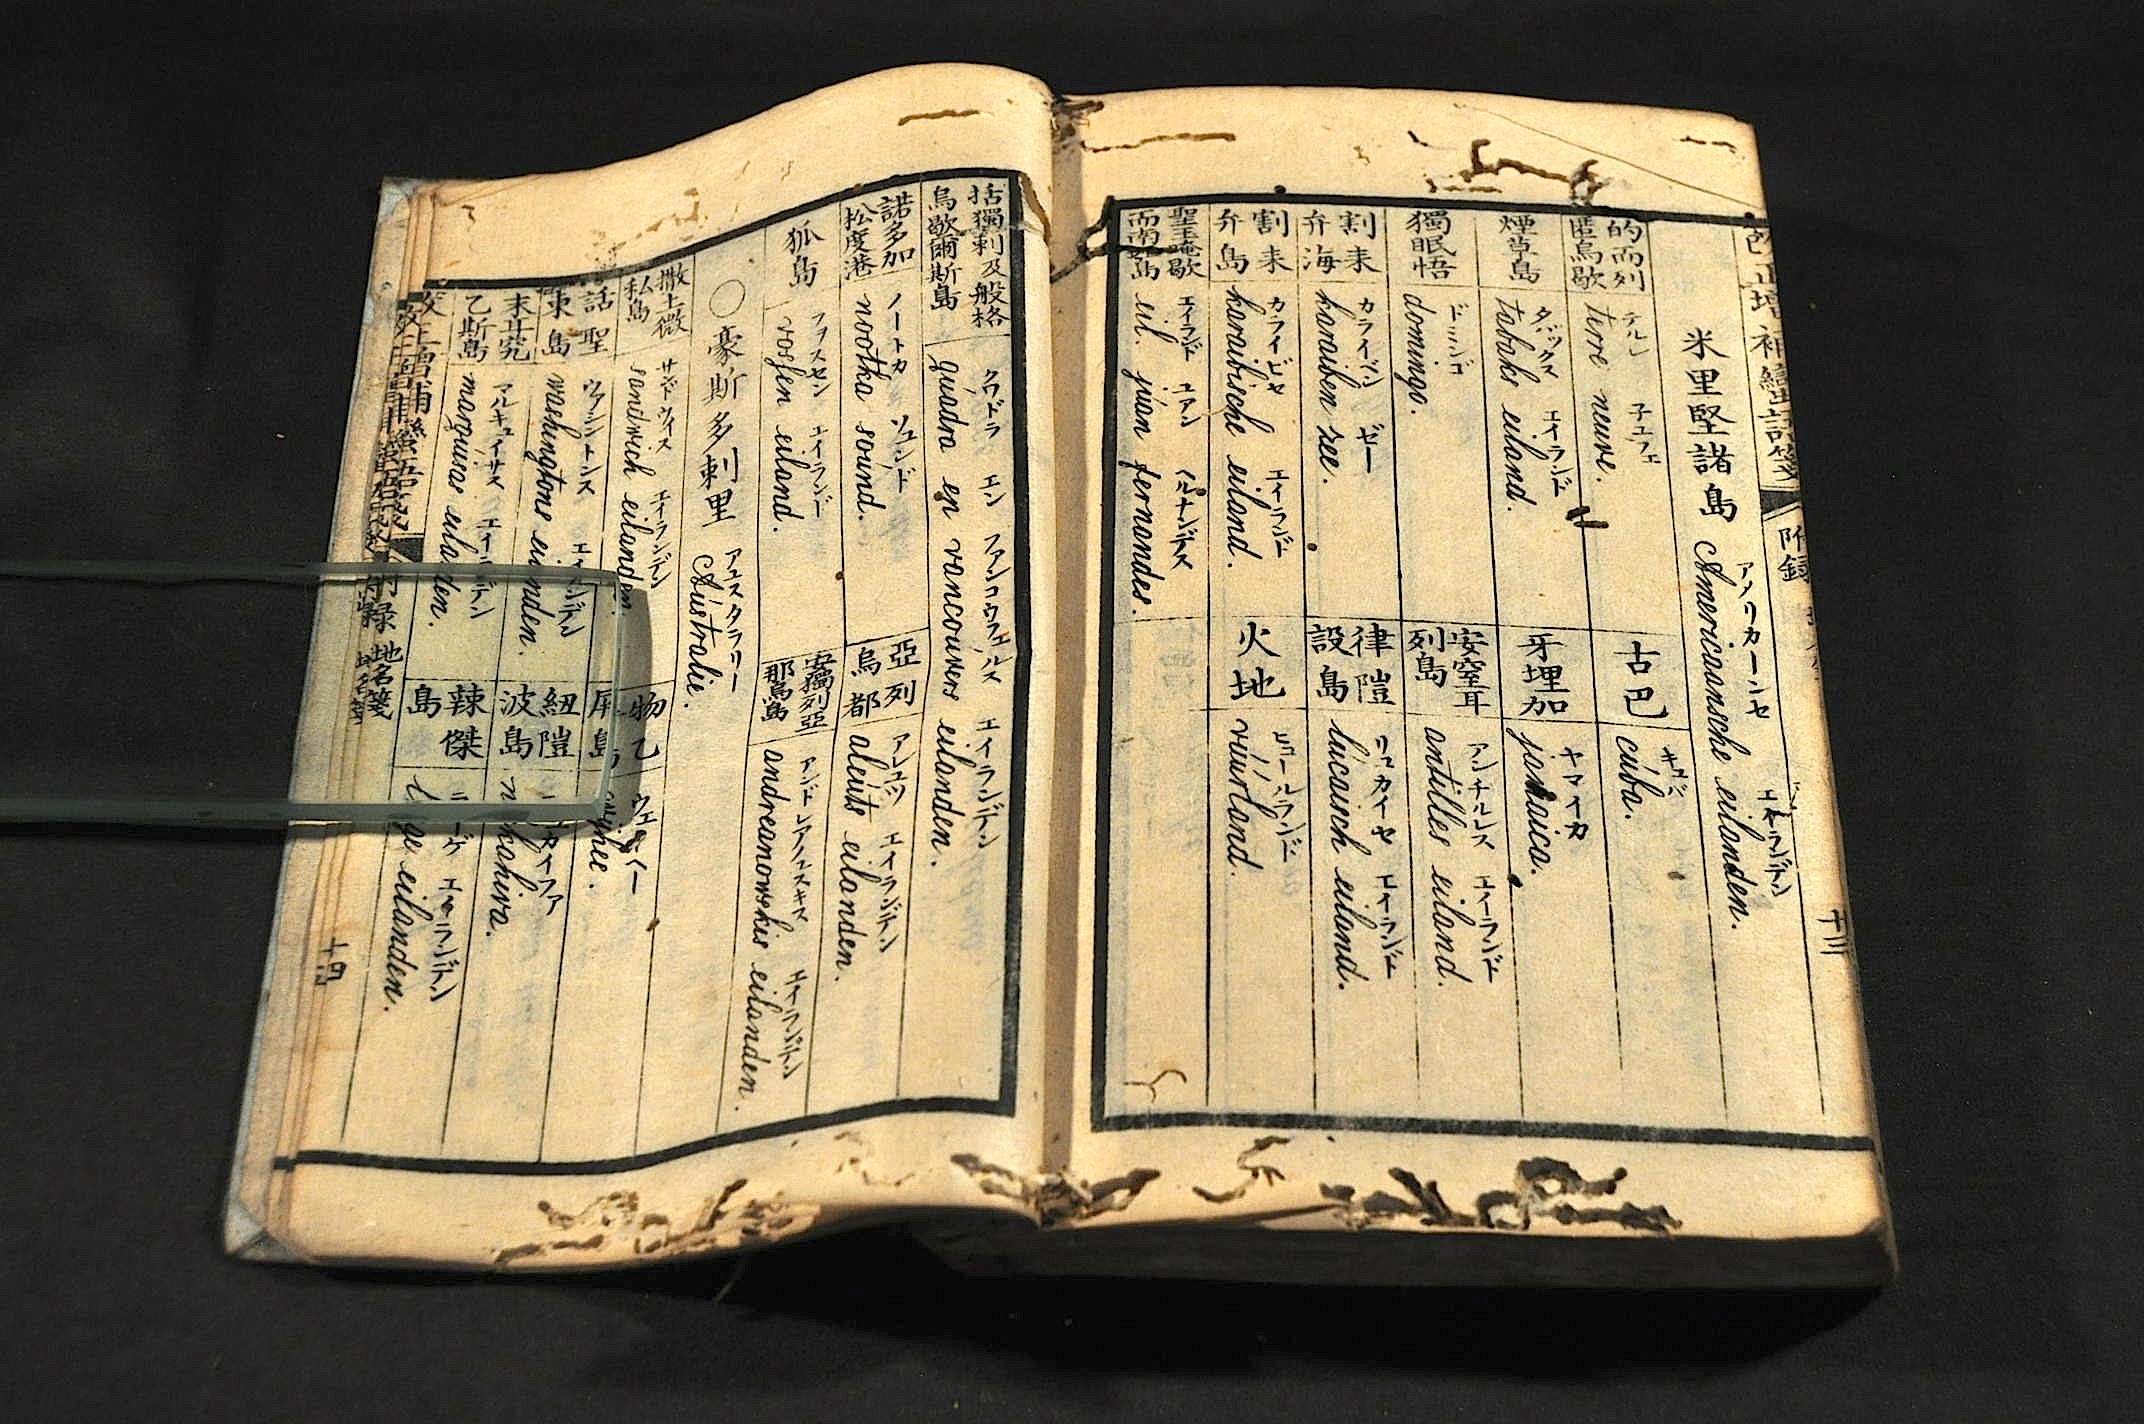 改正増補蠻語箋
附録
十三
米里堅諸島
アメリカーンセ エイランデン
Americaansche eilanden.
的而列匿烏歇
テルレ 子ユフェ
terre neuve.
古巴
キュバ
cuba.
煙草島
タバックス エイランド
tabaks eiland.
牙埋加
ヤマイカ
jamaica.
獨眠悟
ドミンゴ
domingo.
安窒耳列島
アンチルレス エイーランド
antilles eiland.
割来弁海
カライベン ゼー
karaiben zee.
律愷設島
リュカイセ エイランド
lucaisch eiland.
割来弁島
カライビセ エイランド
karaibische eiland.
火地
ヒュールランド
vuurland.
エイランド ユアン ヘルナンデス
eil. juan fernandes.
括獨剌及般格烏歇爾斯島
クワドラ エン ファンコウフェルス エイランデン
quadra en vancouvers eilanden.
諾多加松度港
ノートカ ソュンド
nootka sound.
亞列烏都
アレュツ エイランデン
aleuts eilanden.
狐島
フヲスセン エイランド
vossen eiland.
安獨列亞那島
アンドレアノュスキス エイランデン
andreanowskis eilanden.
○豪斯多剌里
アュスタラリー
Australie.
撒土微私島
サンドウィス エイランデン
sandwich eilanden.
ウェイヘー
話聖東島
ワアシントンス エイランデン
washingtons eilanden.
紐愷波島
末耳究乙斯島
マルキュイサス エイランデン
marquisas eilanden.
辣傑島
エイランデン
eilanden.
改正増補蠻語箋
附録 地名箋
十四